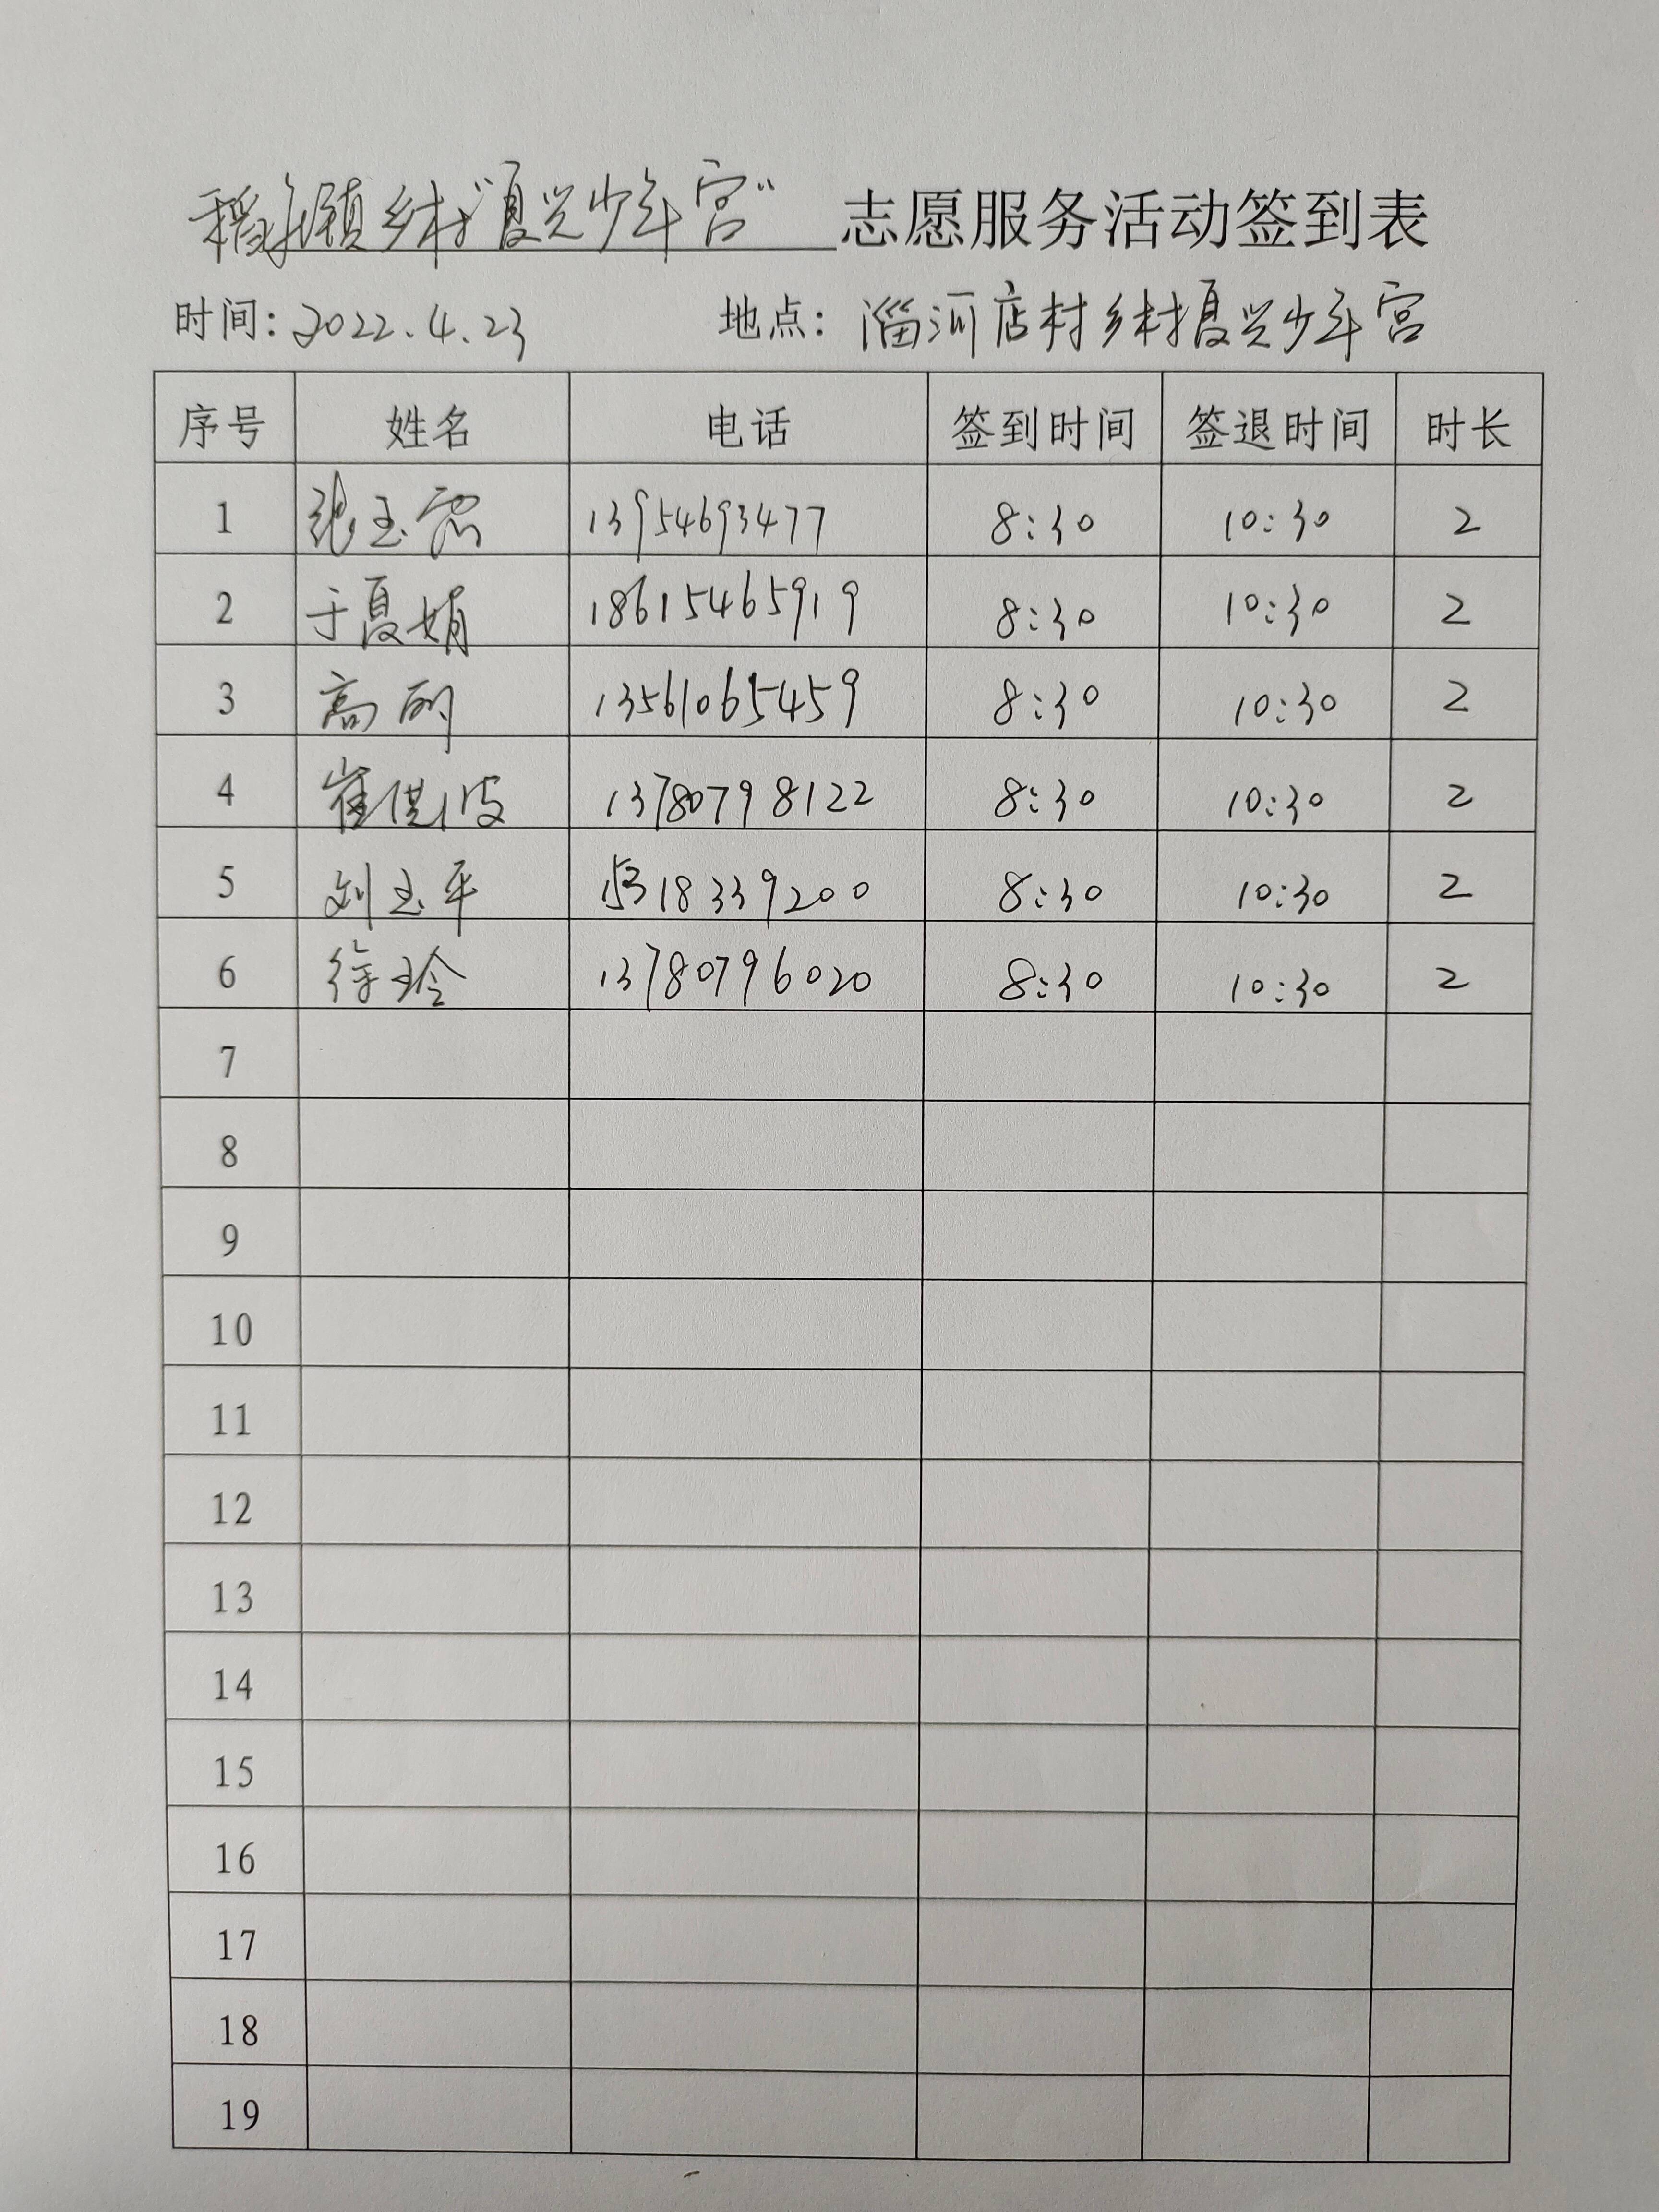 稻庄镇乡村"复兴少年宫" 志愿服务活动签到表
时间: 2022.4.23 地点: 淄河店村乡村复兴少年宫
序号 姓名 电话 签到时间 签退时间 时长
1 张玉 13954693477 8:30 10:30 2
2 于夏娟 18615465919 8:30 10:30 2
3 高丽 13561065459 8:30 10:30 2
4 崔洪波 13780798122 8:30 10:30 2
5 刘玉平 15318339200 8:30 10:30 2
6 徐玲 13780796020 8:30 10:30 2
7
8
9
10
11
12
13
14
15
16
17
18
19